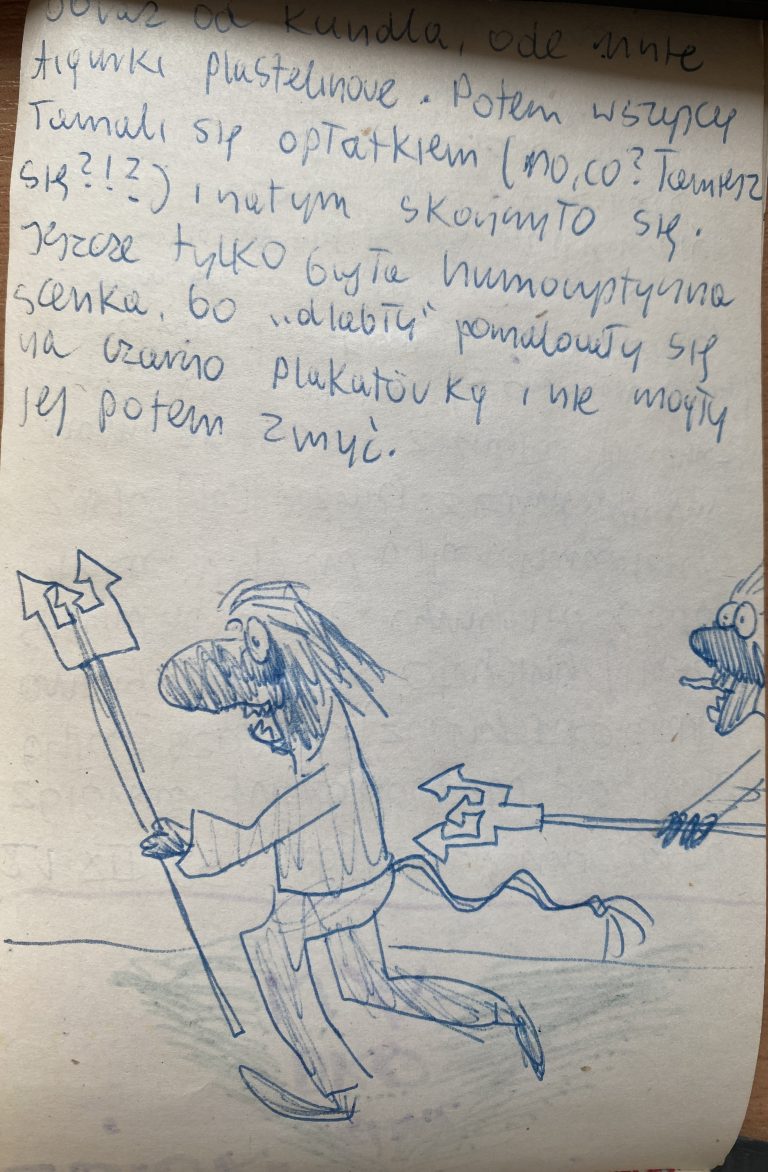 obraz od Kundla, ode mnie
figurki plastelinove. Potem wszyscy
łamali się opłatkiem (no, co? Łamiesz
się?!?) i natym skończyło się.
Jeszcze tylko była humorystyczna
scenka, bo „diabły” pomalowały się
na czarno plakatówką i nie mogły
jej potem zmyć.